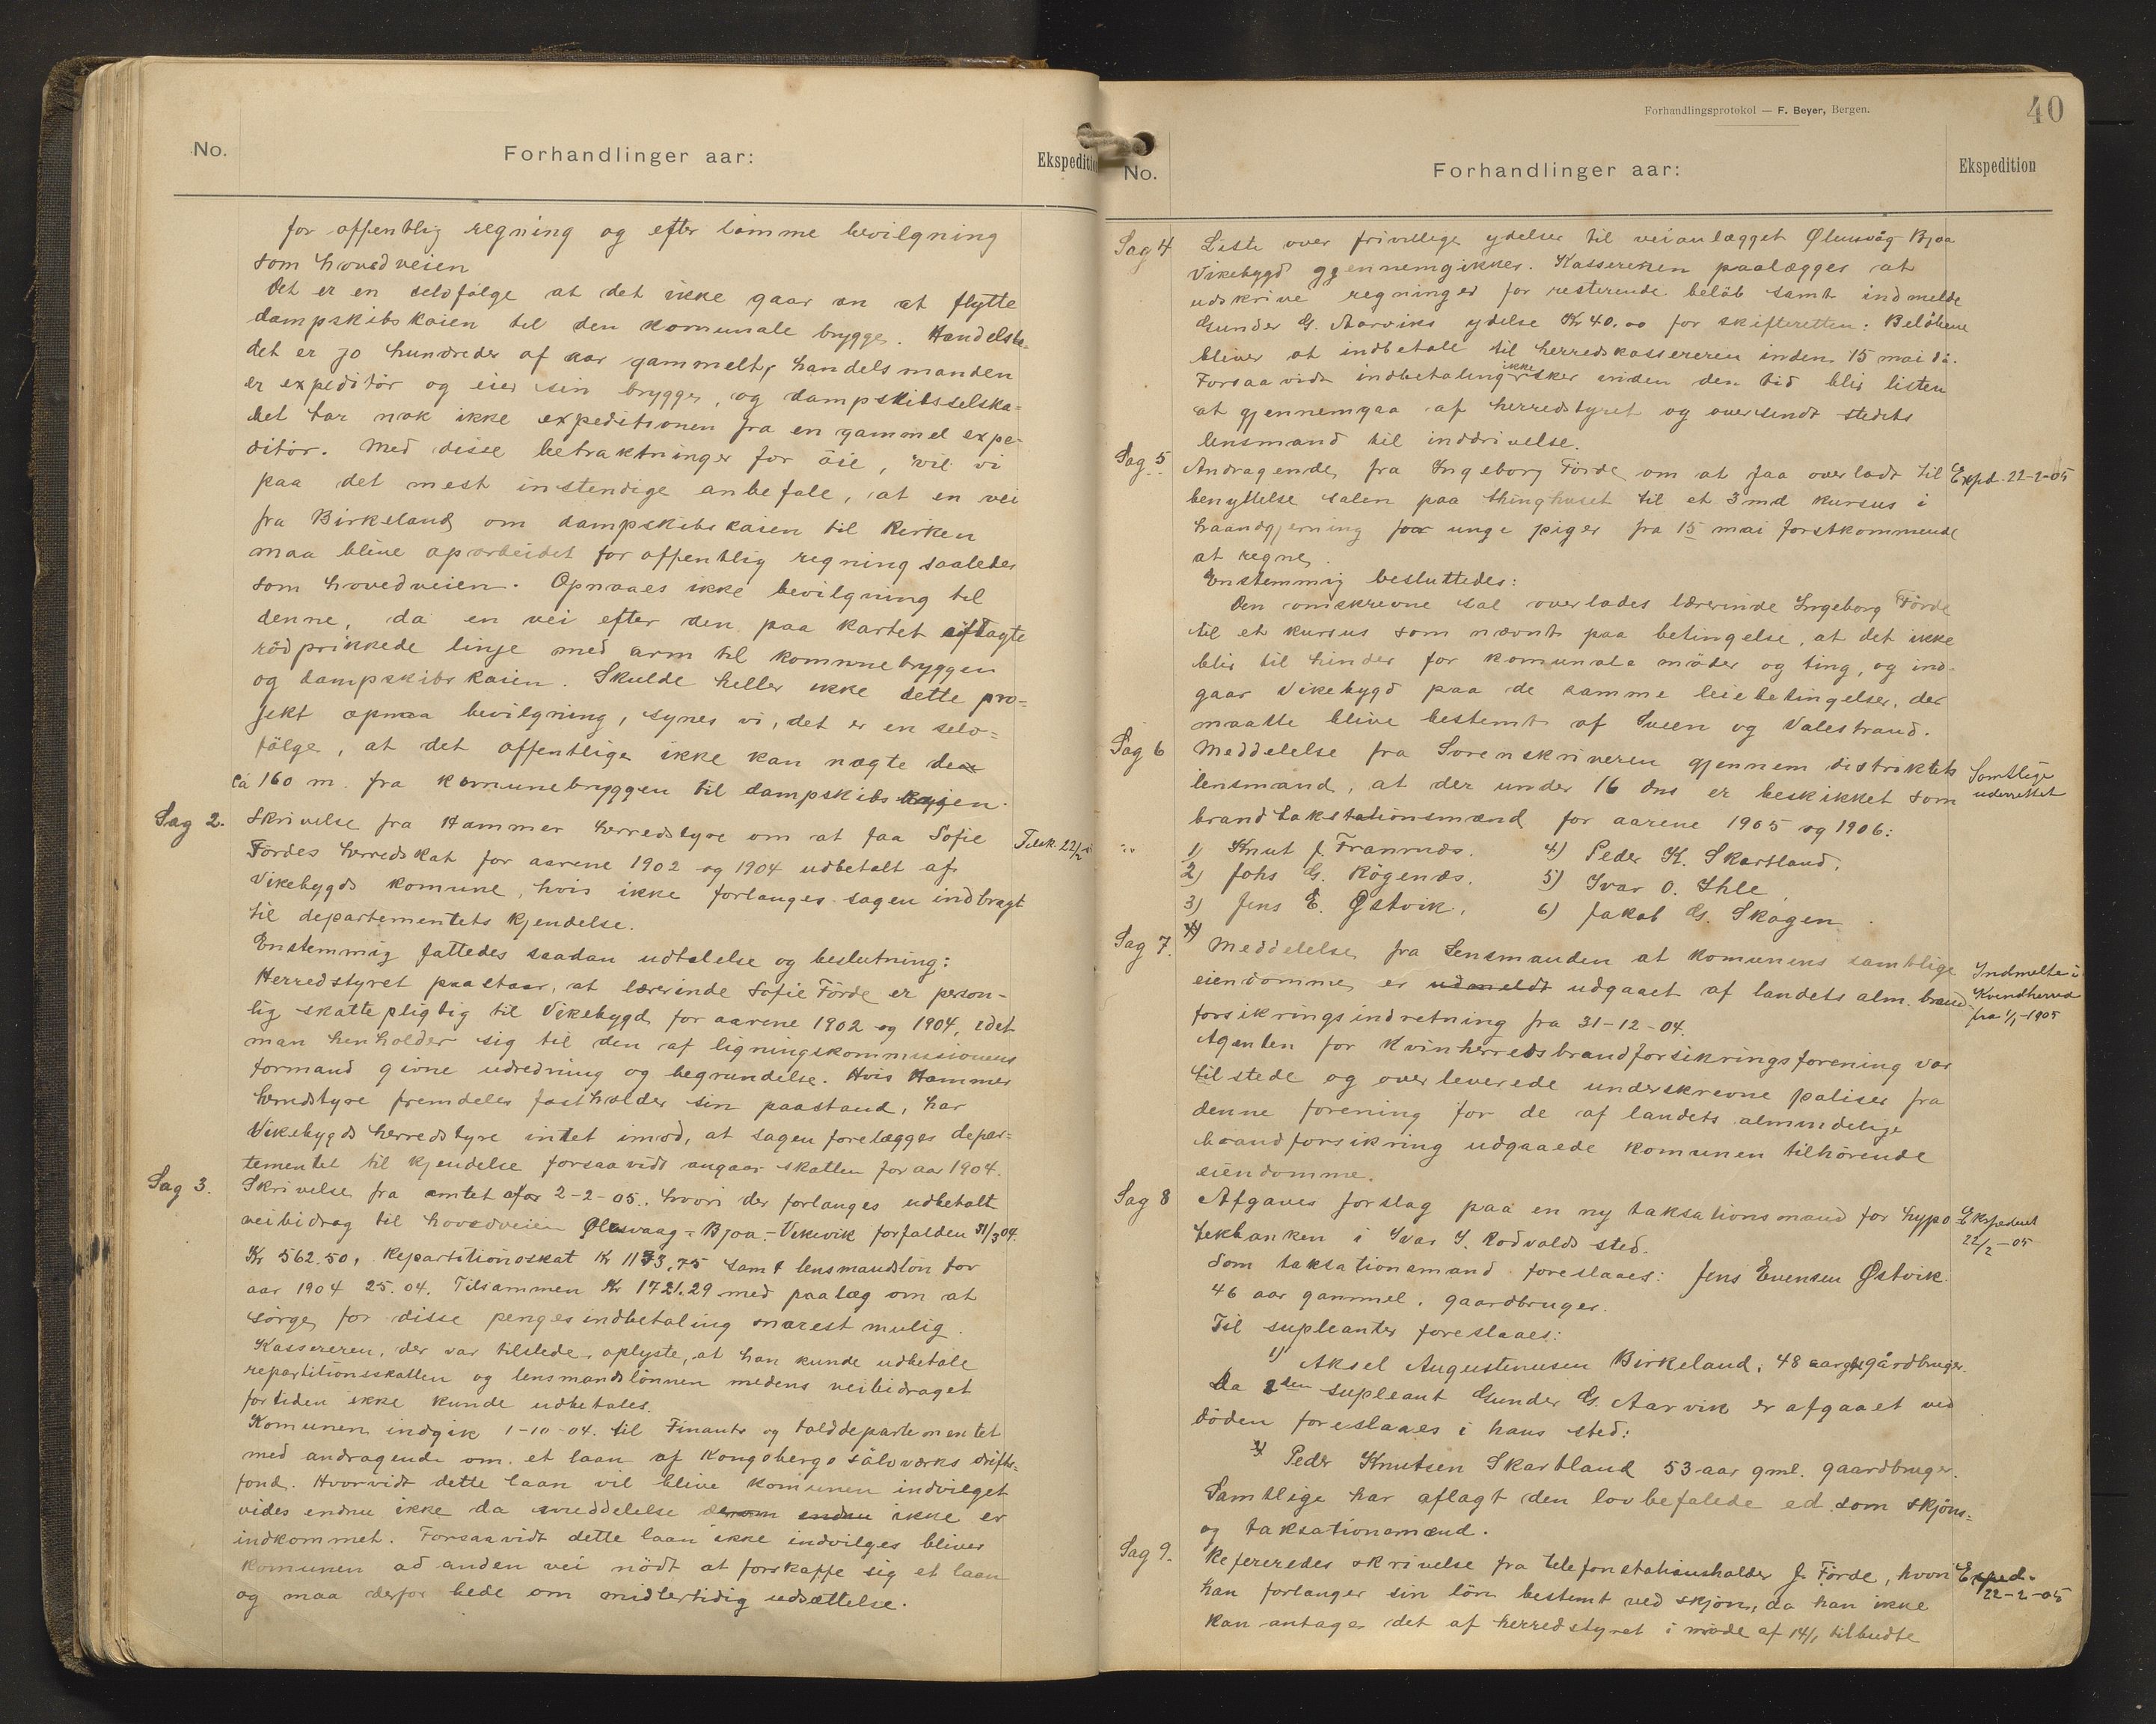 No.
Forhandlinger aar:
Ekspedition
for offentlig regning og efter samme bevilgning
som hovedveien
Det er en selvfølge at det ikke gaar an at flytte
dampskibskaien til den komunale brygge. Handelsste-
det er jo hundreder af aar gammelt, handelsmanden
er expeditör og eier sin brygge, og dampskibsselska=
bet tar nok ikke expeditionen fra en gammel expe-
ditör. Med disse betraktninger for öie, vil vi
paa det mest instendige anbefale, at en vei
fra Birkeland om dampskibskaien til Kirken
maa blive oparbeidet for offentlig regning saaledes
som hovedveien. Opnaaes ikke bevilgning til
denne, da en vei efter den paa kartet aftagte
rödprikkede linje med arm til kommunebryggen
og dampskibskaien. Skulde heller ikke dette pro=
jekt opnaa bevilgning, synes vi, det er en selv=
fölge, at det offentlige ikke kan nægte de
ca 160 m. fra komunebryggen til dampskibskaien.
Sag 2.
Skrivelse fra Hammer herredstyre om at faa Sofie
Tilsk. 22/2
Fördes herredskat for aarene 1902 og 1904 udbetalt af
Vikebygds komune, hvis ikke forlanges sagen indbragt
til departementets kjendelse.
Enstemmig fattedes saadan udtalelse og beslutning:
Herredstyret paastaar, at lærerinde Sofie Förde er person-
lig skattepligtig til Vikebygd for aarene 1902 og 1904, idet
man henholder sig til den af ligningskommissionens
formand givne udredning og begrundelse. Hvis Hammer
herredstyre fremdeles fastholder sin paastand, har
Vikebygds herredstyre intet imod, at sagen forelægges depar=
tementet til kjendelse forsaavidt angaar skatten for aar 1904.
Sag 3.
Skrivelse fra amtet afor 2-2-05., hvori der forlanges udbetalt
veibidrag til hovedveien Ølensvaag - Bjoa - Vikevik forfalden 31/3 04.
Kr 562.50, Repartitionsskat Kr 1133,75 samt lensmandslön for
aar 1904 25.04. Tilsammen Kr 1721.29 med paalæg om at
sörge for disse penges indbetaling snarest mulig.
Kassereren, der var tilstede, oplyste, at han kunde udbetale
repartitionsskatten og lensmandslönnen medens veibidraget
fortiden ikke kunde udbetales.
Komunen indgik 1-10-04. til Finants og tolddepartementet
med andragende om et laan af Kongsbergs sölvværks drifts=
fond. Hvorvidt dette laan vil blive komunen indvilget
vides endnu ikke da meddelelse derom endnu ikke er
indkommet. Forsaavidt dette laan ikke indvilges bliver
komunen ad anden vei nödt at forskaffe sig et laan
og maa derfor bede om midlertidig udsættelse.
Forhandlingsprotokol — F. Beyer, Bergen.
40
No.
Forhandlinger aar:
Ekspedition
Sag 4
Liste over frivillige ydelser til veianlægget Ølensvåg Bjoa
Vikebygd gjennemgikkes. Kassereren paalægges at
udskrive regninger for resterende belöb samt indmelde
Gunder G. Aarviks ydelse Kr 40.00 for skifteretten. Belöbene
bliver at indbetale til herredskassereren inden 15 mai d.a.
Forsaavidt indbetaling ikke sker inden den tid blir listen
at gjennemgaa af herredstyret og oversendt stedets
lensmand til inddrivelse.
Sag 5
Andragende fra Ingeborg Förde om at faa overladt til
Expd. 22-2-05
benyttelse salen paa thinghuset til et 3 md kursus i
haandgjerning for unge piger fra 15 mai förstkommende
at regne.
Enstemmig besluttedes:
Den omskrevne sal overlades lærerinde Ingeborg Förde
til et kursus som nævnt paa betingelse, at det ikke
blir til hinder for komunale möder og ting, og ind-
gaar Vikebygd paa de samme leiebetingelser, der
maatte blive bestemt af Sveen og Valestrand.
Sag 6
Meddelelse fra Sorenskriveren gjennem distriktets
Samtlige
underrettet
lensmand, at der under 16 dns er beskikket som
brandtakstationsmænd for aarene 1905 og 1906:
1) Knut J. Framnæs. 4) Peder K. Skartland.
2) Johs G. Røgenæs. 5) Ivar O. Ihle
3) Jens E. Østvik. 6) Jakob G. Skogen
Sag 7.
Meddelelse fra Lensmanden at komunens samtlige
Indmeldte i
Kvindherred
fra 1/1-1905
eiendomme er udmeldt udgaaet af landets alm. brand-
forsikringsindretning fra 31-12-04.
Agenten for Kvinherreds brandforsikringsforening var
tilstede og overleverede underskrevne poliser fra
denne forening for de af landets almindelige
brandforsikring udgaaede komunen tilhörende
eiendomme.
Sag 8
Afgaves forslag paa en ny taksationsmand for hypo
Ekspedert
22/2-05
tekbanken i Ivar I. Rodvolds sted.
Som taksationsmand foreslaaes: Jens Evensen Østvik.
46 aar gammel, gaardbruger.
Til supleanter foreslaaes:
1) Aksel Augustinusen Birkeland, 48 aar gl gårdbruger.
Da 2den supleant Gunder G. Aarvik er afgaaet ved
döden foreslaaes i hans sted:
Peder Knutsen Skartland 53 aar gml. gaardbruger.
Samtlige har aflagt den lovbefalede ed som skjöns=
og taksationsmænd.
Sag 9.
Refereredes skrivelse fra telefonstationsholder J. Förde, hvori
Exped.
22-2-05
han forlanger sin lön bestemt ved skjön, da han ikke
kan antage det af herredstyret i möde af 14/1 tilbudte